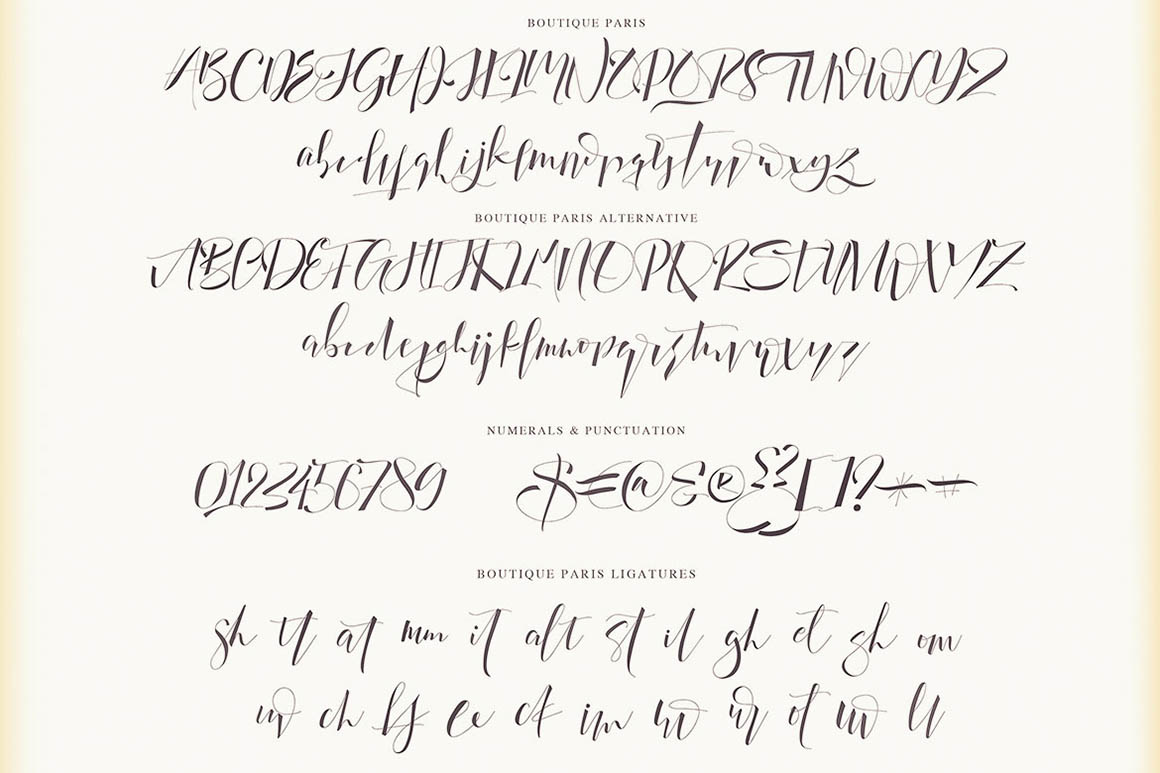 BOUTIQUE PARIS
ABCDEFGHIJKLMNOPQRSTUVWXYZ
abcdefghijklmnopqrstuvwxyz
BOUTIQUE PARIS ALTERNATIVE
ABCDEFGHIJKLMNOPQRSTUVWXYZ
abcdefghijklmnopqrstuvwxyz
NUMERALS & PUNCTUATION
0123456789 $=@&®{}[]?*-#
BOUTIQUE PARIS LIGATURES
sh tt at mm it alt st il gh et sh om
ch im ot ll